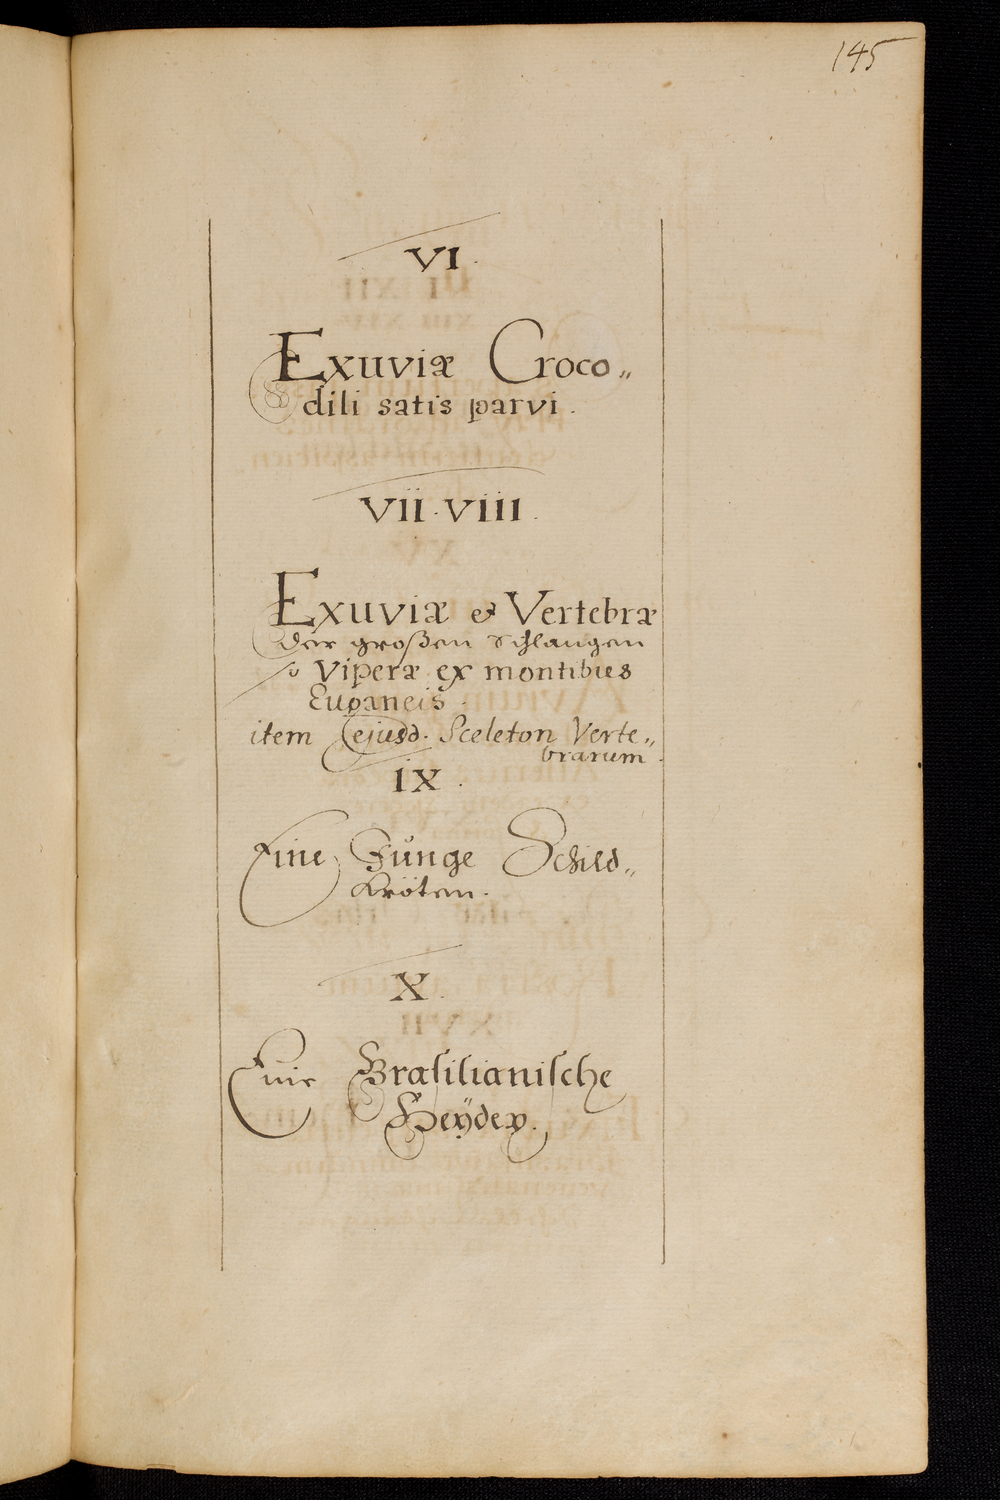 145
VI.
Exuviæ Croco„
dili satis parvi.
VII. VIII.
Exuviæ et Vertebræ
der großen Schlangen
Viperæ ex montibus
Euganeis.
item ejusd. Sceleton Verte„
brarum.
IX.
Eine Junge Schild„
Kröten.
X.
Eine Brasilianische
Heÿdex.